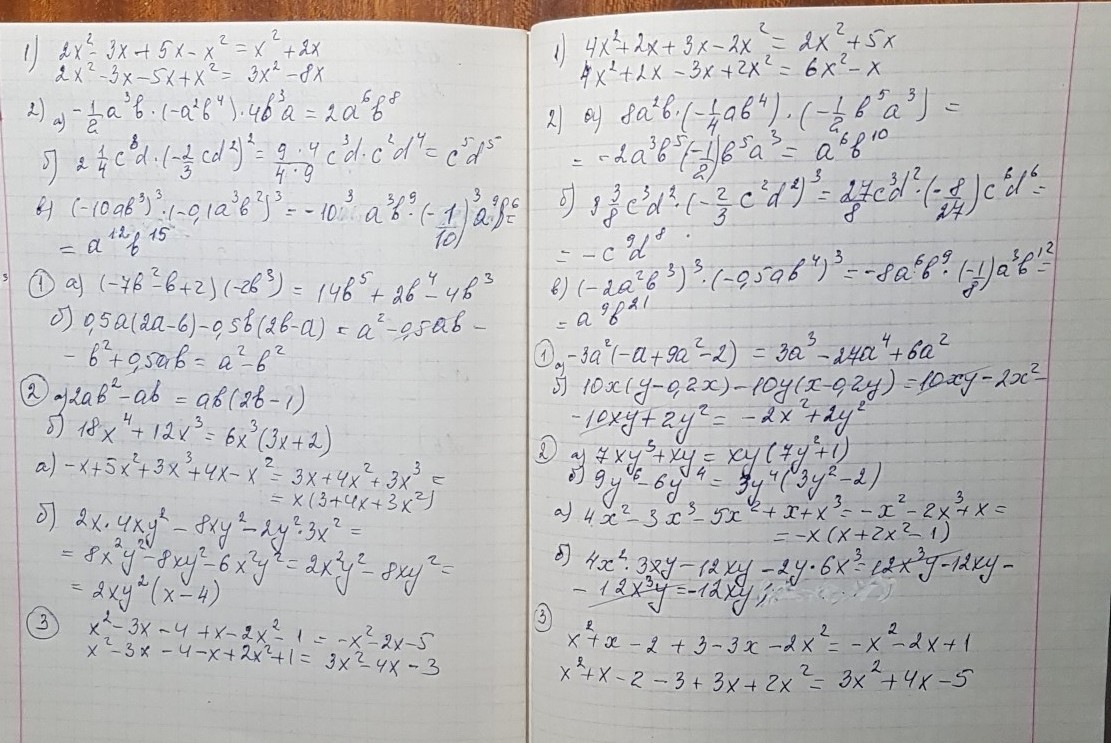 1) 2x² - 3x + 5x - x² = x² + 2x
2x² - 3x - 5x + x² = 3x² - 8x
2) а) -1/2 a³b · (-a²b⁴) · 4b³a = 2a⁶b⁸
б) 2 1/4 c³d · (-2/3 cd²)² = 9·4/4·9 c³d · c²d⁴ = c⁵d⁵
в) (-10ab³)³ · (-0,1a³b²)³ = -10³ a³b⁹ · (-1/10)³ a⁹b⁶ =
= a¹²b¹⁵
① а) (-7b² - b + 2)(-2b³) = 14b⁵ + 2b⁴ - 4b³
б) 0,5a(2a - b) - 0,5b(2b - a) = a² - 0,5ab -
- b² + 0,5ab = a² - b²
② а) 2ab² - ab = ab(2b - 1)
б) 18x⁴ + 12x³ = 6x³(3x + 2)
а) -x + 5x² + 3x³ + 4x - x² = 3x + 4x² + 3x³ =
= x(3 + 4x + 3x²)
б) 2x · 4xy² - 8xy² - 2y² · 3x² =
= 8x²y² - 8xy² - 6x²y² = 2x²y² - 8xy² =
= 2xy²(x - 4)
③ x² - 3x - 4 + x - 2x² - 1 = -x² - 2x - 5
x² - 3x - 4 - x + 2x² + 1 = 3x² - 4x - 3
1) 4x² + 2x + 3x - 2x² = 2x² + 5x
4x² + 2x - 3x + 2x² = 6x² - x
2) а) 8a²b · (-1/4 ab⁴) · (-1/2 b⁵a³) =
= -2a³b⁵ (-1/2) b⁵a³ = a⁶b¹⁰
б) 3 3/8 c³d² · (-2/3 c²d²)³ = 27/8 c³d² · (-8/27) c⁶d⁶ =
= -c⁹d⁸
в) (-2a²b³)³ · (-0,5ab⁴)³ = -8a⁶b⁹ · (-1/8) a³b¹² =
= a⁹b²¹
① а) -3a²(-a + 9a² - 2) = 3a³ - 27a⁴ + 6a²
б) 10x(y - 0,2x) - 10y(x - 0,2y) = 10xy - 2x² -
- 10xy + 2y² = -2x² + 2y²
② а) 7xy³ + xy = xy(7y² + 1)
б) 9y⁶ - 6y⁴ = 3y⁴(3y² - 2)
а) 4x² - 3x³ - 5x² + x + x³ = -x² - 2x³ + x =
= -x(x + 2x² - 1)
б) 4x² · 3xy - 12xy - 2y · 6x³ = 12x³y - 12xy -
- 12x³y = -12xy
③ x² + x - 2 + 3 - 3x - 2x² = -x² - 2x + 1
x² + x - 2 - 3 + 3x + 2x² = 3x² + 4x - 5